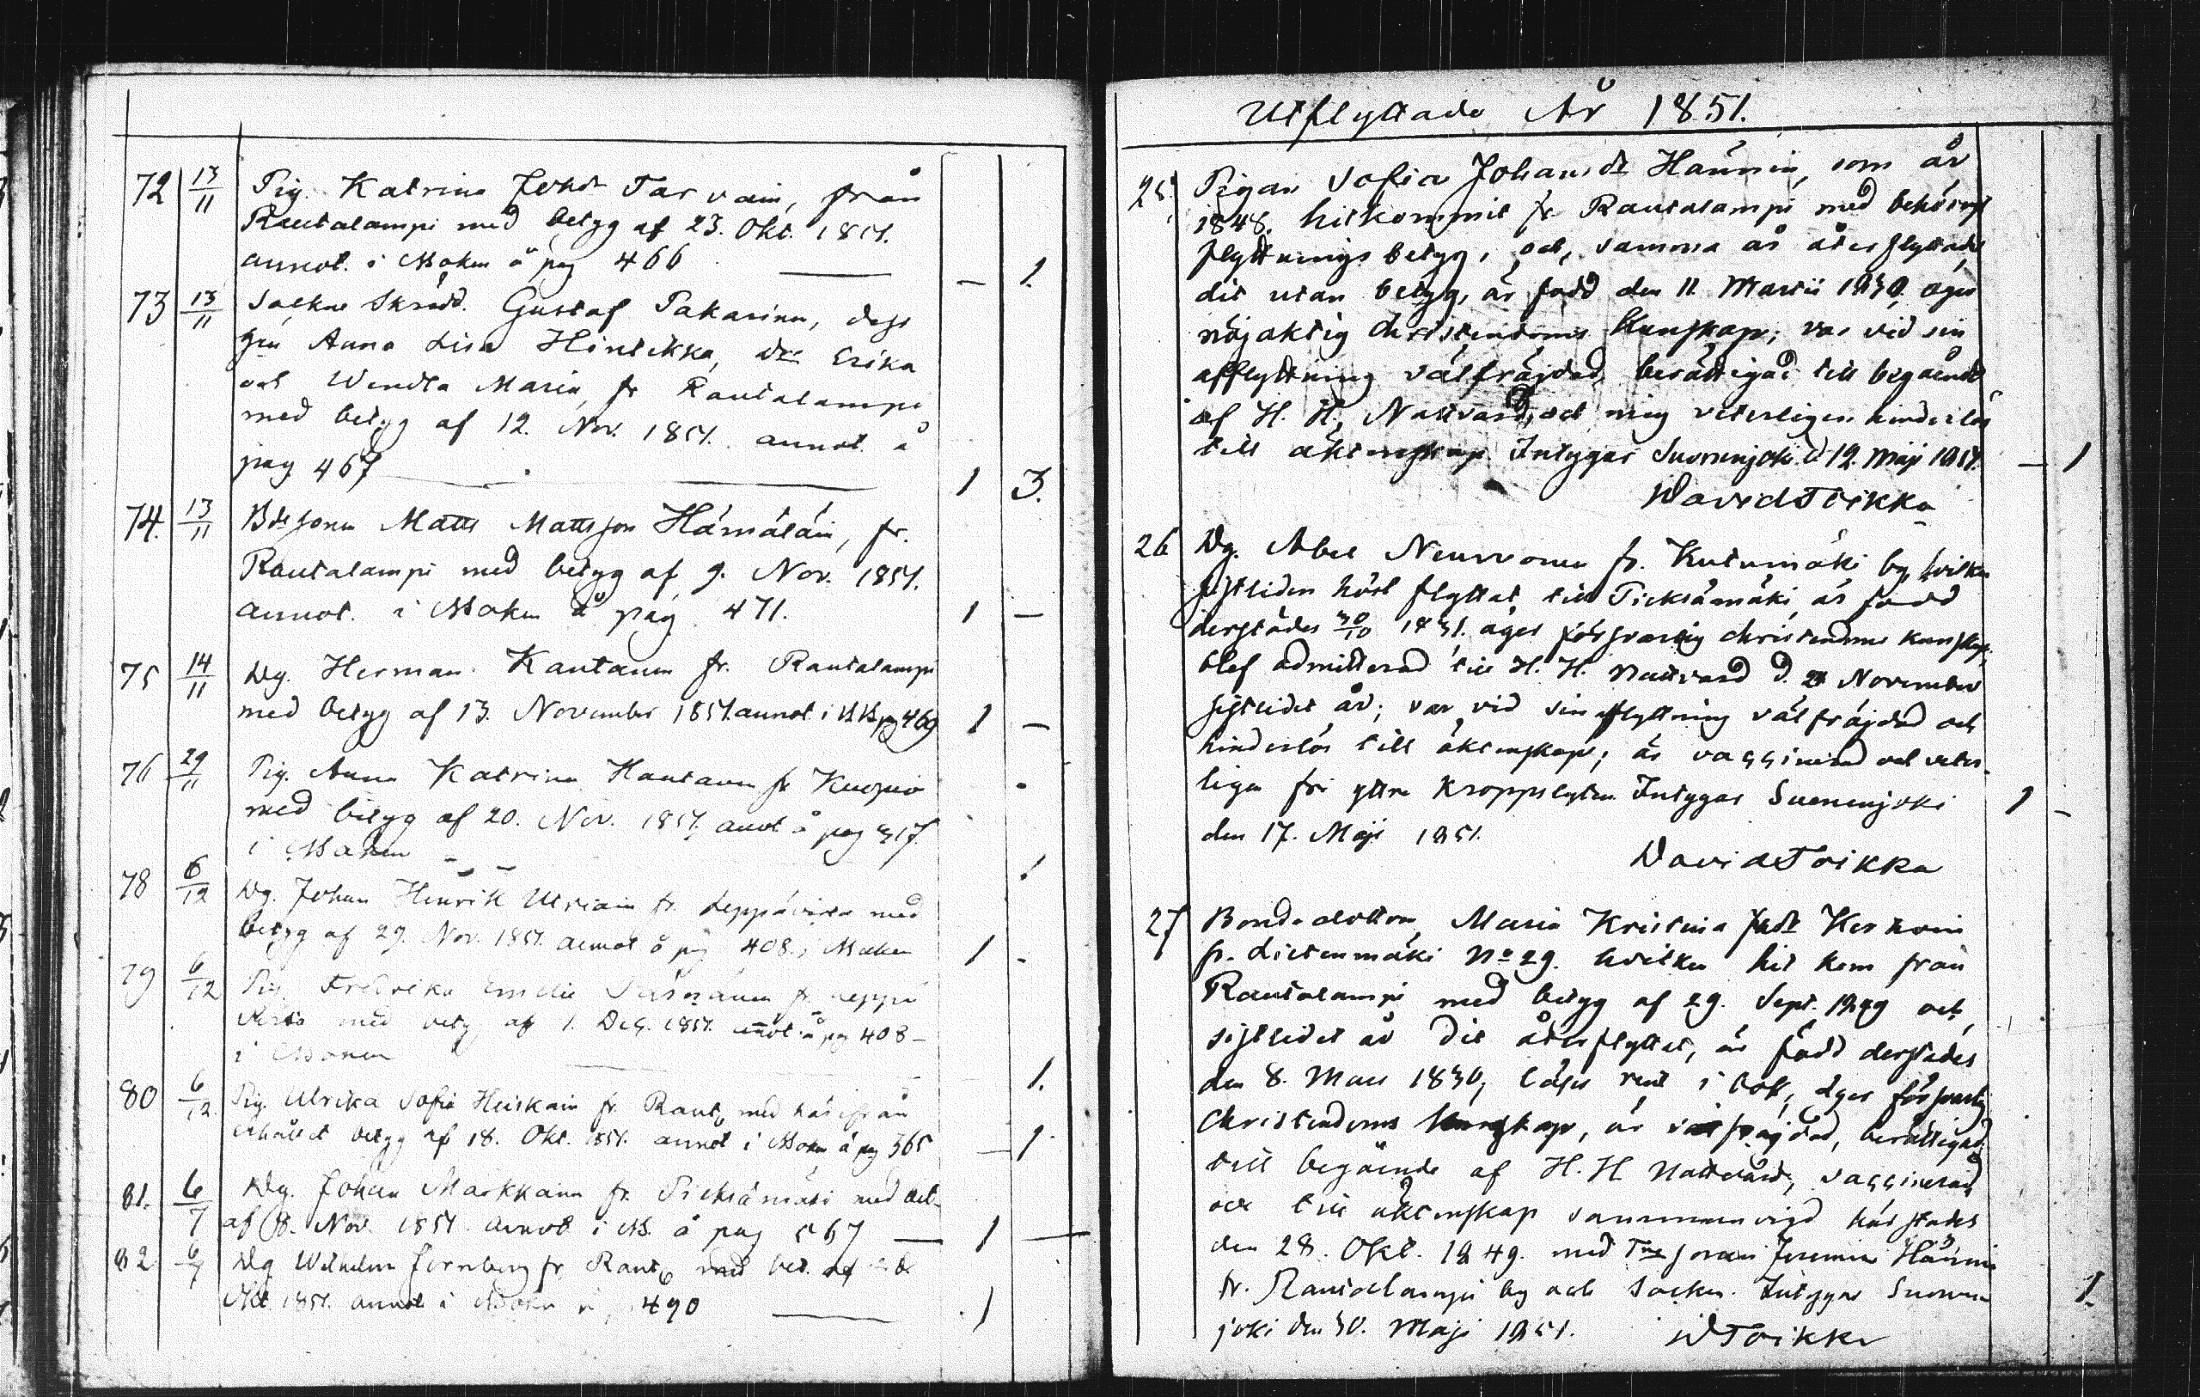 72 13/11 Pig. Katrina Johsdr Tarvain, från
Rautalampi med betyg af 23. Okt. 1851.
annot. i M.boken å pag 466 — 1.
73 13/11 Sockne Skrädd. Gustaf Pakarinen, dess
hu Anna Lisa Hintikka, dr Erika
och Wendla Maria, fr Rautalampi
med betyg af 12. Nov. 1851. annot. å
pag 467 1 3.
74. 13/11 Bdesonen Matts Mattsson Hämäläin, fr.
Rautalampi med betyg af 9. Nov. 1851.
annot. i M.boken å pag 471. 1 —
75 14/11 Dg. Herman Kautanen fr. Rautalampi
med betyg af 13. November 1851. annot. i pag 469 1 —
76 29/11 Pig. Anna Katrina Hautanen fr Kuopio
med betyg af 20. Nov. 1851. annot å pag 317.
i M.boken — — 1
78 6/12 Dg. Johan Henrik fr. Leppävirta med
betyg af 29. Nov. 1851. annot å pag 408. i M.boken 1 -
79 6/12 Pig. Fredrika Emelie fr. Leppä
virta med betyg af 1. Dec. 1851. annot. å pag 408 —
i M.boken 1.
80 6/12 Pig. Ulrika Sofia Heiskain fr. Raut, med härifrån
erhållet betyg af 18. Okt. 1851. annot i M.boken å pag 365 — 1.
81. 6/7 Dg. Johan Markkanen fr. Pieksämäki med bet.
af 8. Nov. 1851. annot i M.B. å pag 567 — 1 —
82 6/7 Dg Wilhelm fr. Raut, med bet. af
Okt. 1851. annot i M.boken å 490 — 1
Utflyttade År 1851.
25. Pigan Sofia Johansdr Hännin, som år
1848. hitkommit fr Rautalampi med behörigt
flyttningsbetyg, och, samma år återflyttade
dit utan betyg, är född den 11. Martii 1830, äger
nöjaktig christendoms kunskap; var vid sin
afflyttning välfräjdad, berättigad till begående
af H. H. Nattvard, och mig veterligen hinderlös
till äktenskap. Intygar Suonenjoki d 12. Maji 1851. — 1
David Toikka
26 Dg. Abel Neuvonen fr. Kutumäki by, hvilken
sistliden höst flyttat till Pieksämäki, är född
derstädes 30/10 1831. äger försvarlig christendoms kunskap;
blef admitterad till H. H. Nattvard d. 21 November
sistlidet år; var vid sin afflyttning välfräjdad och
hinderlös till äktenskap; är vaccinerad och veter-
ligen fri yttre kroppslyten. Intygar Suonenjoki 1 —
den 17. Maji 1851.
David Toikka
27 Bondedottren Maria Kristina Johsdr Korhoin
fr. Lietenmäki No 29. hvilken hit kom från
Rautalampi med betyg af 29. Sept. 1849 och
sistlidet år dit återflyttat, är född derstädes
den 8. Mars 1830, läser rent i bok, äger försvarlig
Christendoms kunskap, är välfräjdad, berättigad
till begående af H. H Nattvard, vaccinerad
och till äktenskap sammanvigd härstädes
den 28. Okt. 1849. med Jeremias Hännin
fr. Rautalampi by och Socken. Intygar Suonen
joki den 30. Maji 1851. 1.
D Toikka